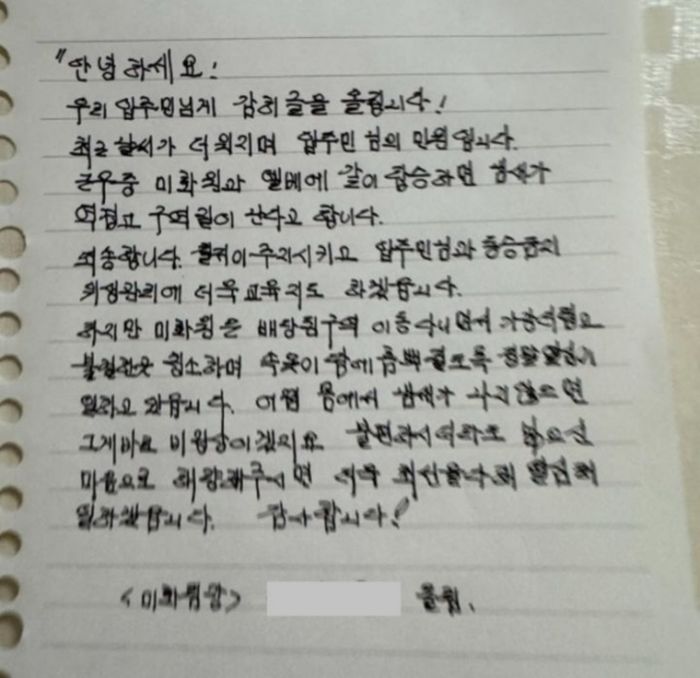 "안녕하세요!
우리 입주민님게 감히 글을 올립니다!
최근 날씨가 더워지며 입주민 님의 민원입니다.
근무중 미화원과 엘베에 같이 탑승하면 냄새가
역겹고 구역질이 난다고 합니다.
죄송합니다. 철저이 주지시키고 입주민님과 동승금지
위생관리에 더욱 교육 지도 하겠습니다.
하지만 미화원은 배당된 구역 이동하면서
불필요한 하며 속옷이 땀에 흠뻑 젖도록 열심히
일하고 있습니다. 어찌 몸에서 냄새가 나지 않으면
그게 바로 비정상이겠지요 불편하시더라도 넓으신
마음으로 해주시면 더욱 최선을 다해 열심히
일하겠습니다. 감사합니다!
<미화팀장> 올림.